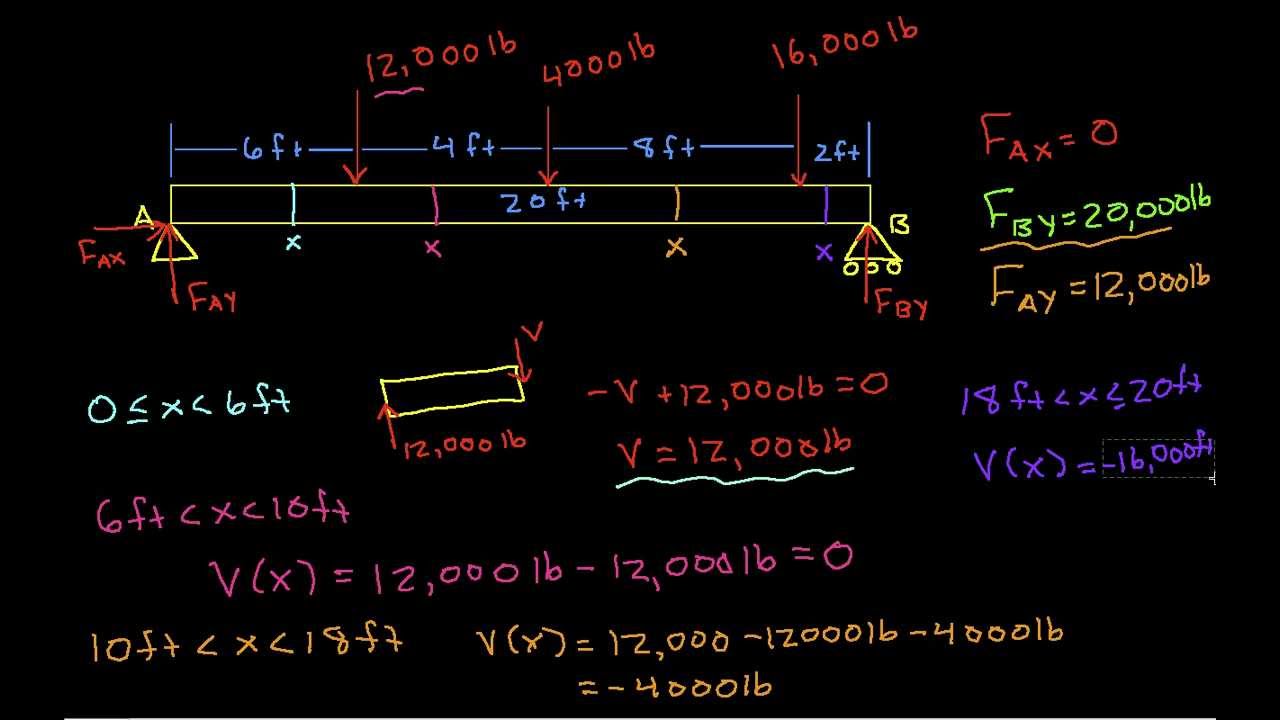 12,000 lb
4000 lb
16,000 lb
6 ft
4 ft
8 ft
2 ft
20 ft
A
B
x
x
x
x
FAX
FAY
FBY
FAX = 0
FBY = 20,000lb
FAY = 12,000lb
0 ≤ x < 6ft
V
12,000 lb
-V + 12,000lb = 0
V = 12,000lb
18 ft < x ≤ 20ft
V(x) = -16,000ft
6ft < x < 10ft
V(x) = 12,000 lb - 12,000 lb = 0
10ft < x < 18 ft
V(x) = 12,000 - 12000lb - 4000lb
= -4000lb